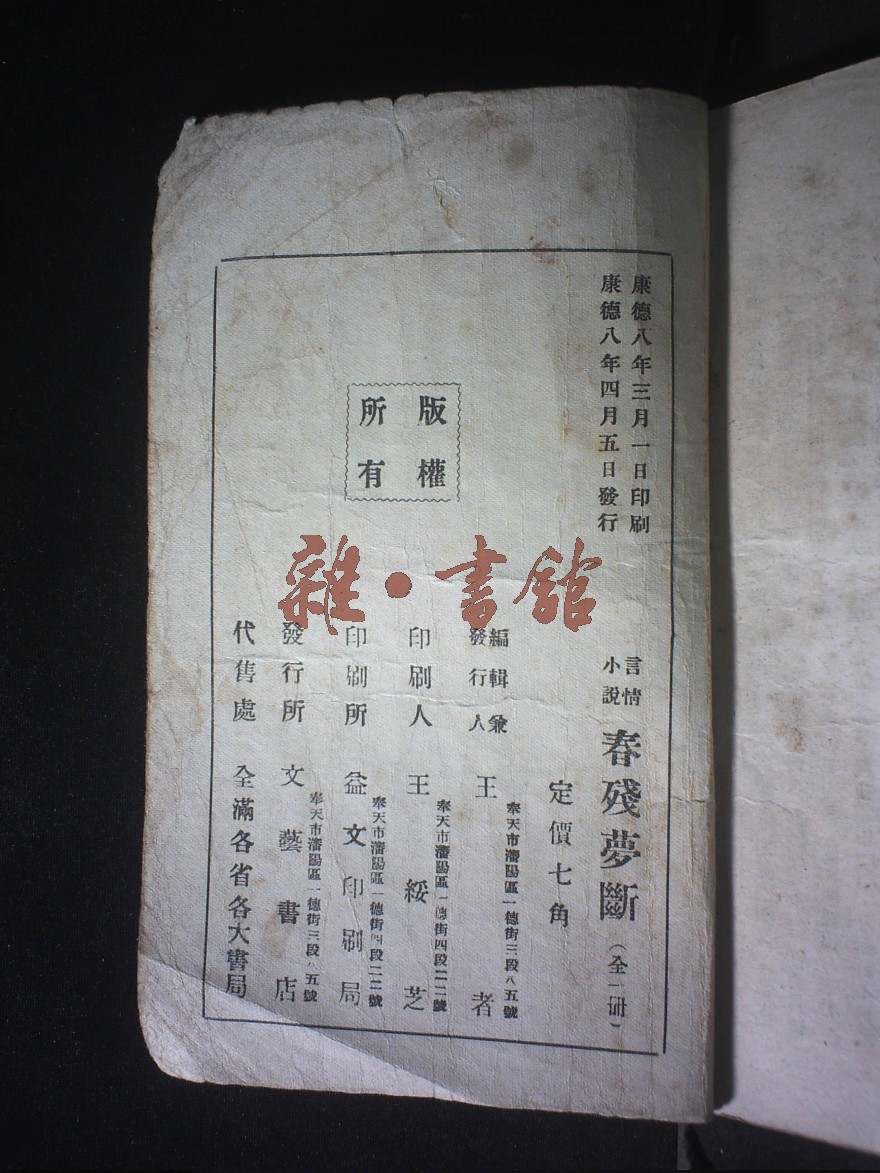 康德八年三月一日印刷
康德八年四月五日發行
言情小說 春殘夢斷（全一冊）
定價七角
版權所有
編輯兼發行人 王者
奉天市瀋陽區一德街三段八五號
印刷人 王綏芝
奉天市瀋陽區一德街四段二二號
印刷所 益文印刷局
奉天市瀋陽區一德街四段二二號
發行所 文藝書店
奉天市瀋陽區一德街三段八五號
代售處 全滿各省各大書局
雜·書館